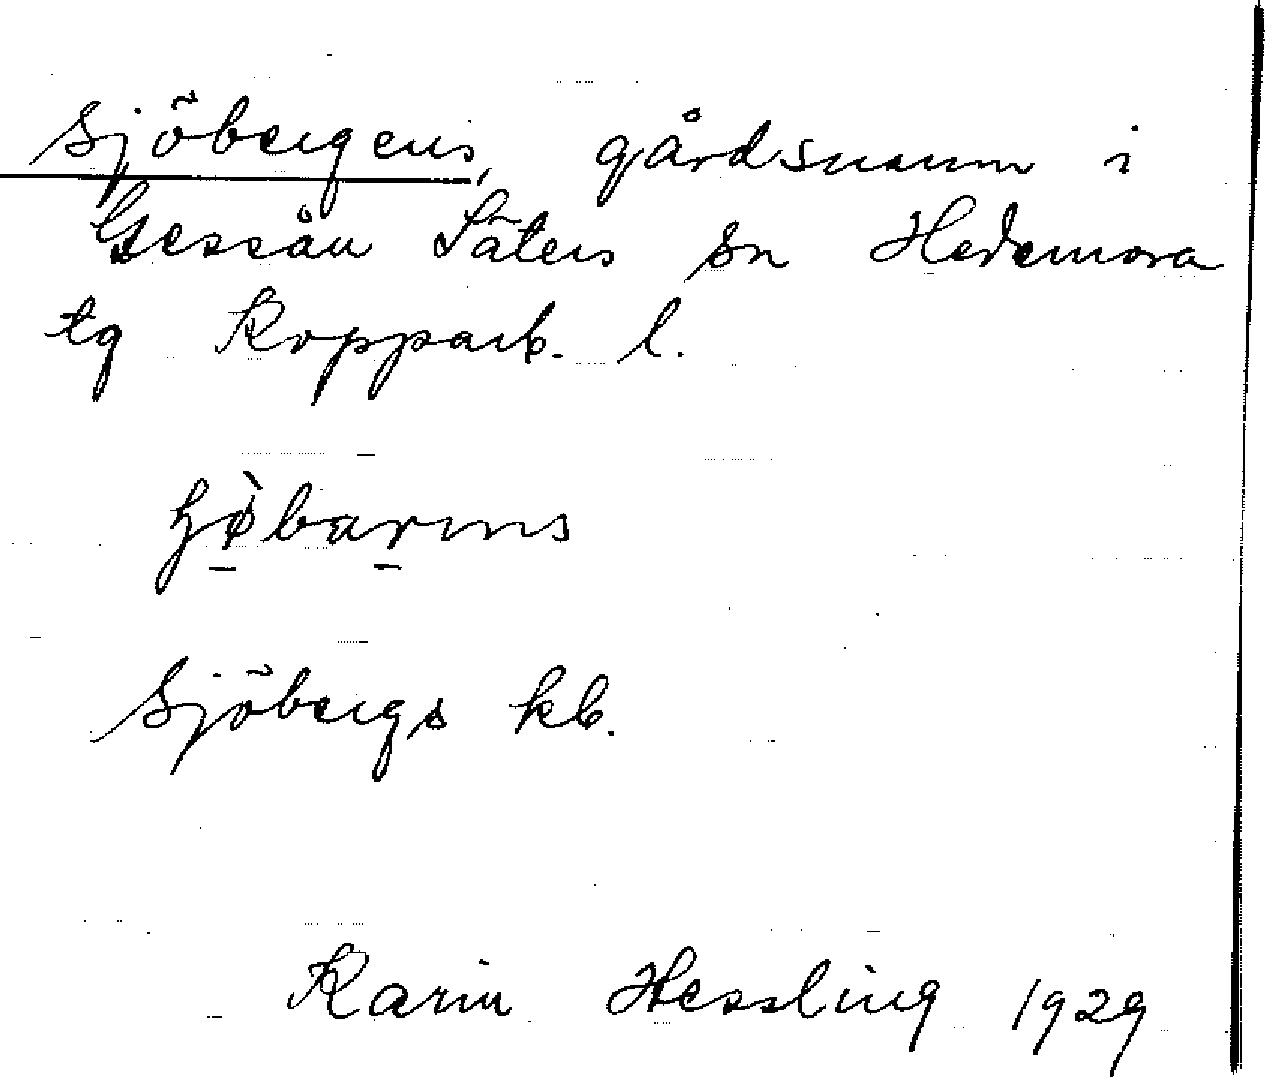 Sjöbergens, gårdsnamn i
Gessån Säters sn Hedemora
tg Kopparb. l.
Sjöbergs kb.
Karin Hessling 1929